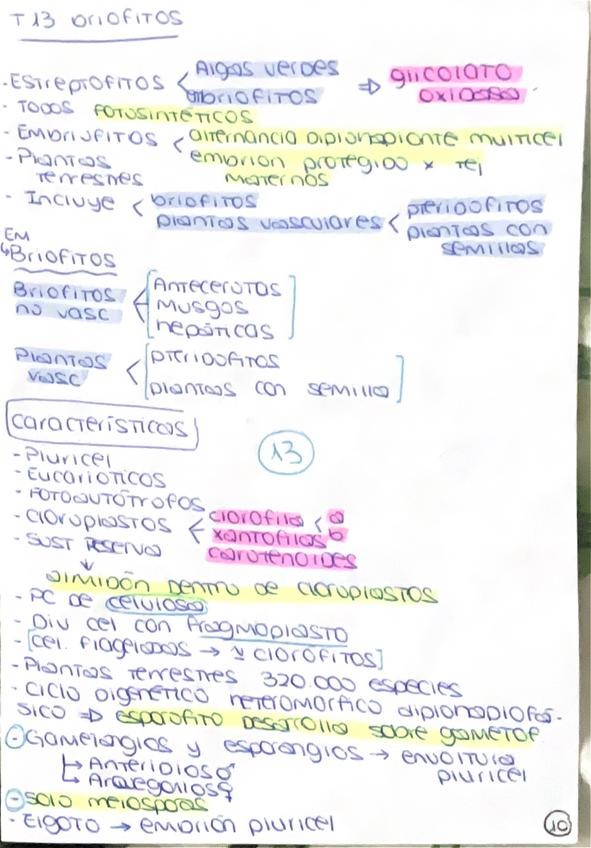 T 13 BRIOFITOS
- ESTREPTOFITOS < Algas verdes ⇒ glicolato
embriofitos oxidasa
- TODOS FOTOSINTÉTICOS
- EMBRIOFITOS < alternancia diplonaplonte multicel
- Plantas embrion protegido x tej
terrestres maternos
- Incluye < briofitos
plantas vasculares < pteridofitos
plantas con
semillas
EM
↳ BRIOFITOS
Briofitos < Antecerotas
no vasc Musgos
hepáticas
Plantas < pteridofitos
vasc plantas con semilla
características
13
- Pluricel
- Eucarióticos
- FOTOAUTÓTROFOS
- Cloroplastos < clorofila < a
b
xantofilas
- SUST reserva carotenoides
↓
almidón DENTRO DE cloroplastos
- PC DE celulosa
- DIV cel con fragmoplasto
- [cel. flageladas → clorofitos]
- Plantas terrestres 320.000 especies
- Ciclo digenético heteromorfico diplonaplofá-
sico ⇒ esporofito desarrolla sobre gametof
- Gametangios y esporangios → envoltura
↳ Anteridios ♂ pluricel
↳ Arquegonios ♀
- Solo meiosporas
- Zigoto → embrión pluricel
10